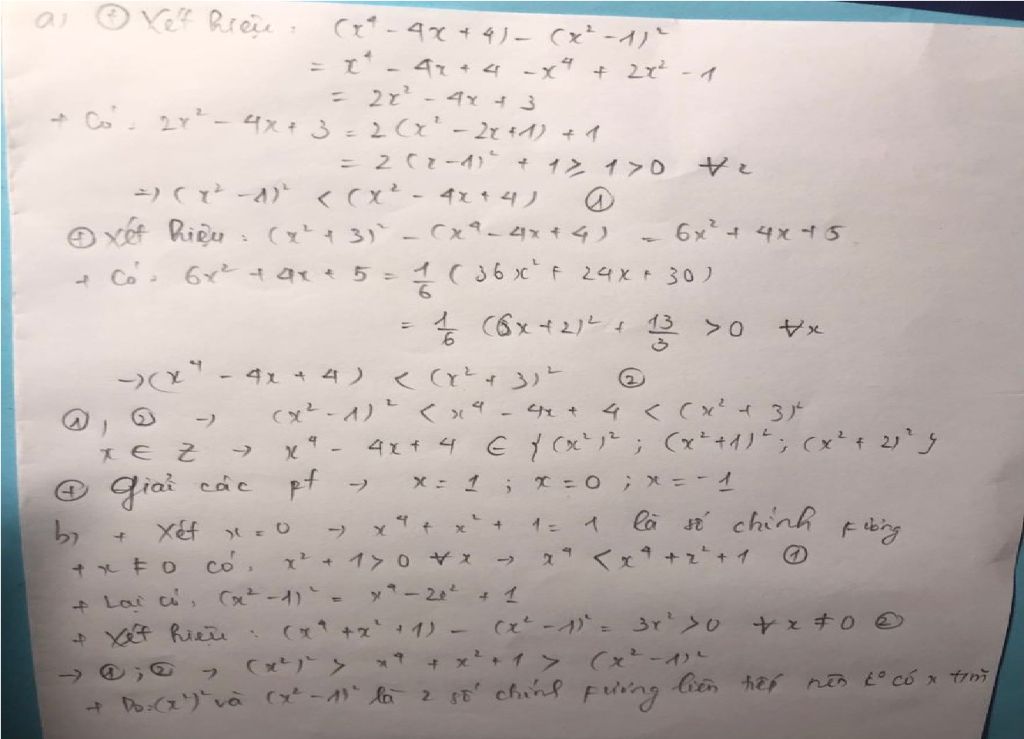 a) ⊕ Xét hiệu : (x⁴ - 4x + 4) - (x² - 1)²
= x⁴ - 4x + 4 - x⁴ + 2x² - 1
= 2x² - 4x + 3
+ Có : 2x² - 4x + 3 = 2(x² - 2x + 1) + 1
= 2(x - 1)² + 1 ≥ 1 > 0 ∀x
=> (x² - 1)² < (x² - 4x + 4) ①
⊕ Xét hiệu : (x² + 3)² - (x⁴ - 4x + 4) = 6x² + 4x + 5
+ Có : 6x² + 4x + 5 = 1/6 (36x² + 24x + 30)
= 1/6 (6x + 2)² + 13/3 > 0 ∀x
→ (x⁴ - 4x + 4) < (x² + 3)² ②
①, ② → (x² - 1)² < x⁴ - 4x + 4 < (x² + 3)²
x ∈ Z → x⁴ - 4x + 4 ∈ {(x²)² ; (x² + 1)² ; (x² + 2)²}
⊕ Giải các pt → x = 1 ; x = 0 ; x = -1
b) + Xét x = 0 → x⁴ + x² + 1 = 1 là số chính phương
+ x ≠ 0 có : x² + 1 > 0 ∀x → x⁴ < x⁴ + x² + 1 ①
+ Lại có, (x² - 1)² = x⁴ - 2x² + 1
+ Xét hiệu : (x⁴ + x² + 1) - (x² - 1)² = 3x² > 0 ∀x ≠ 0 ②
→ ① ; ② → (x²)² > x⁴ + x² + 1 > (x² - 1)²
+ Do : (x²)² và (x² - 1)² là 2 số chính phương liên tiếp nên k° có x t/m